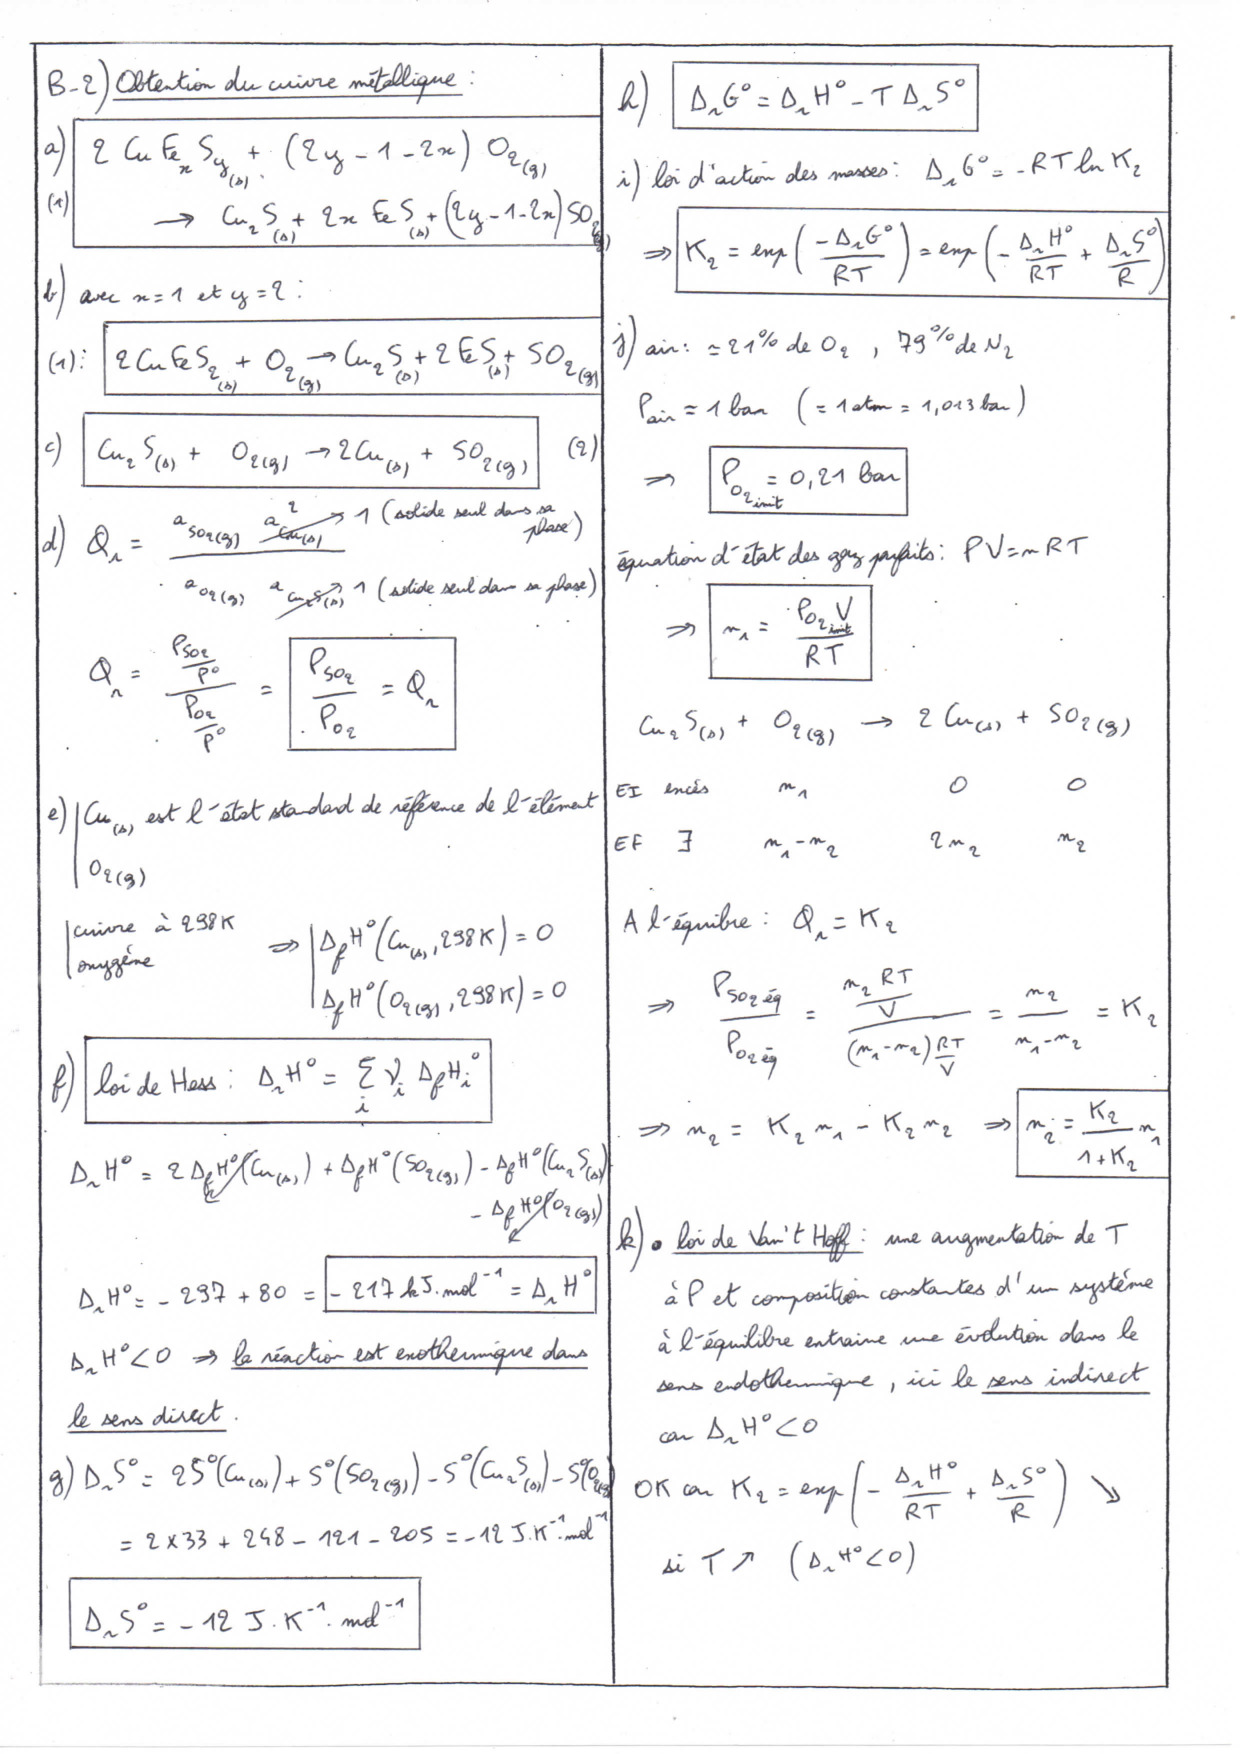 B-2) Obtention du cuivre métallique :
a) 2 CuFeₓS_y(s) + (2y - 1 - 2x) O₂(g)
(1) → Cu₂S(s) + 2x FeS(s) + (2y-1-2x) SO₂(g)
b) avec x = 1 et y = 2 :
(1) : 2 CuFeS₂(s) + O₂(g) → Cu₂S(s) + 2 FeS(s) + SO₂(g)
c) Cu₂S(s) + O₂(g) → 2Cu(s) + SO₂(g) (2)
d) Qᵣ = a SO₂(g) a² Cu(s) → 1 (solide seul dans sa phase)
a O₂(g) a Cu₂S(s) → 1 (solide seul dans sa phase)
Qᵣ = (P_SO₂/P°) / (P_O₂/P°) = P_SO₂ / P_O₂ = Qᵣ
e) Cu(s) est l'état standard de référence de l'élément
O₂(g)
cuivre à 298K
oxygène
⇒ ΔfH°(Cu(s), 298K) = 0
ΔfH°(O₂(g), 298K) = 0
f) loi de Hess : ΔᵣH° = Σᵢ νᵢ ΔfHᵢ°
ΔᵣH° = 2 ΔfH°(Cu(s)) + ΔfH°(SO₂(g)) - ΔfH°(Cu₂S(s))
- ΔfH°(O₂(g))
ΔᵣH° = - 297 + 80 = - 217 kJ.mol⁻¹ = ΔᵣH°
ΔᵣH° < 0 ⇒ la réaction est exothermique dans
le sens direct.
g) ΔᵣS° = 2S°(Cu(s)) + S°(SO₂(g)) - S°(Cu₂S(s)) - S°(O₂(g))
= 2×33 + 248 - 121 - 205 = -12 J.K⁻¹.mol⁻¹
ΔᵣS° = - 12 J.K⁻¹.mol⁻¹
h) ΔᵣG° = ΔᵣH° - T ΔᵣS°
i) loi d'action des masses : ΔᵣG° = - RT ln K₂
⇒ K₂ = exp(-ΔᵣG°/RT) = exp(-ΔᵣH°/RT + ΔᵣS°/R)
j) air : ≃ 21% de O₂ , 79% de N₂
Pair ≃ 1 bar (= 1 atm = 1,013 bar)
⇒ P_O₂ init = 0,21 bar
équation d'état des gaz parfaits : PV = nRT
⇒ n₁ = P_O₂ init V / RT
Cu₂S(s) + O₂(g) → 2 Cu(s) + SO₂(g)
EI excès n₁ 0 0
EF ∃ n₁-n₂ 2n₂ n₂
A l'équilibre : Qᵣ = K₂
⇒ P_SO₂ éq / P_O₂ éq = (n₂ RT/V) / ((n₁-n₂) RT/V) = n₂ / (n₁-n₂) = K₂
⇒ n₂ = K₂ n₁ - K₂ n₂ ⇒ n₂ = K₂/(1+K₂) n₁
k) • loi de Van't Hoff : une augmentation de T
à P et composition constantes d'un système
à l'équilibre entraine une évolution dans le
sens endothermique, ici le sens indirect
car ΔᵣH° < 0
OK car K₂ = exp(-ΔᵣH°/RT + ΔᵣS°/R) ↘
si T ↗ (ΔᵣH° < 0)